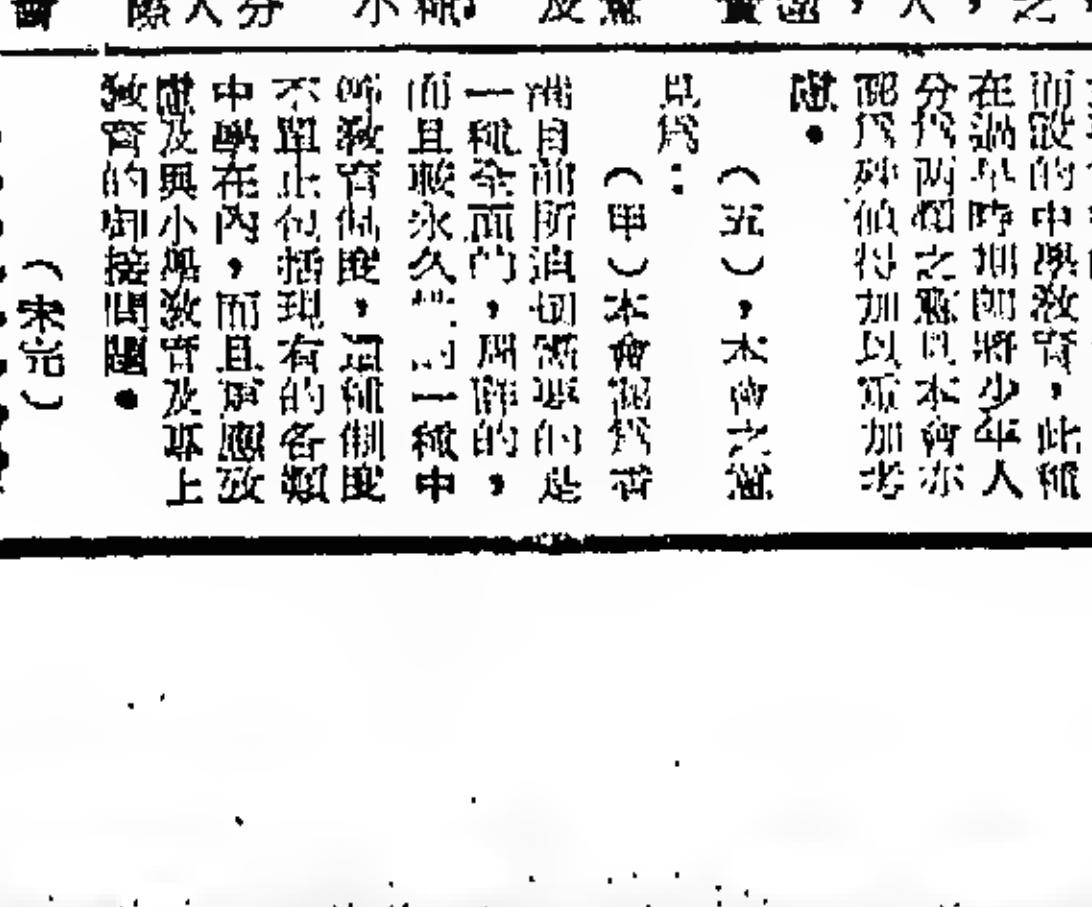 而設的中學教育,此種
在過早時期即將少年人
分爲兩類之意見本會亦
認爲殊值得加以重加考
慮。
(五),本會之意
見爲:
(甲)本會認爲香
港目前所迫切需要的是
一種全面的,周詳的,
而且較永久性的一種中
等教育制度,這種制度
不單止包括現有的各類
中學在內,而且更應致
慮及與小學教育及專上
教育的銜接問題。
(未完)